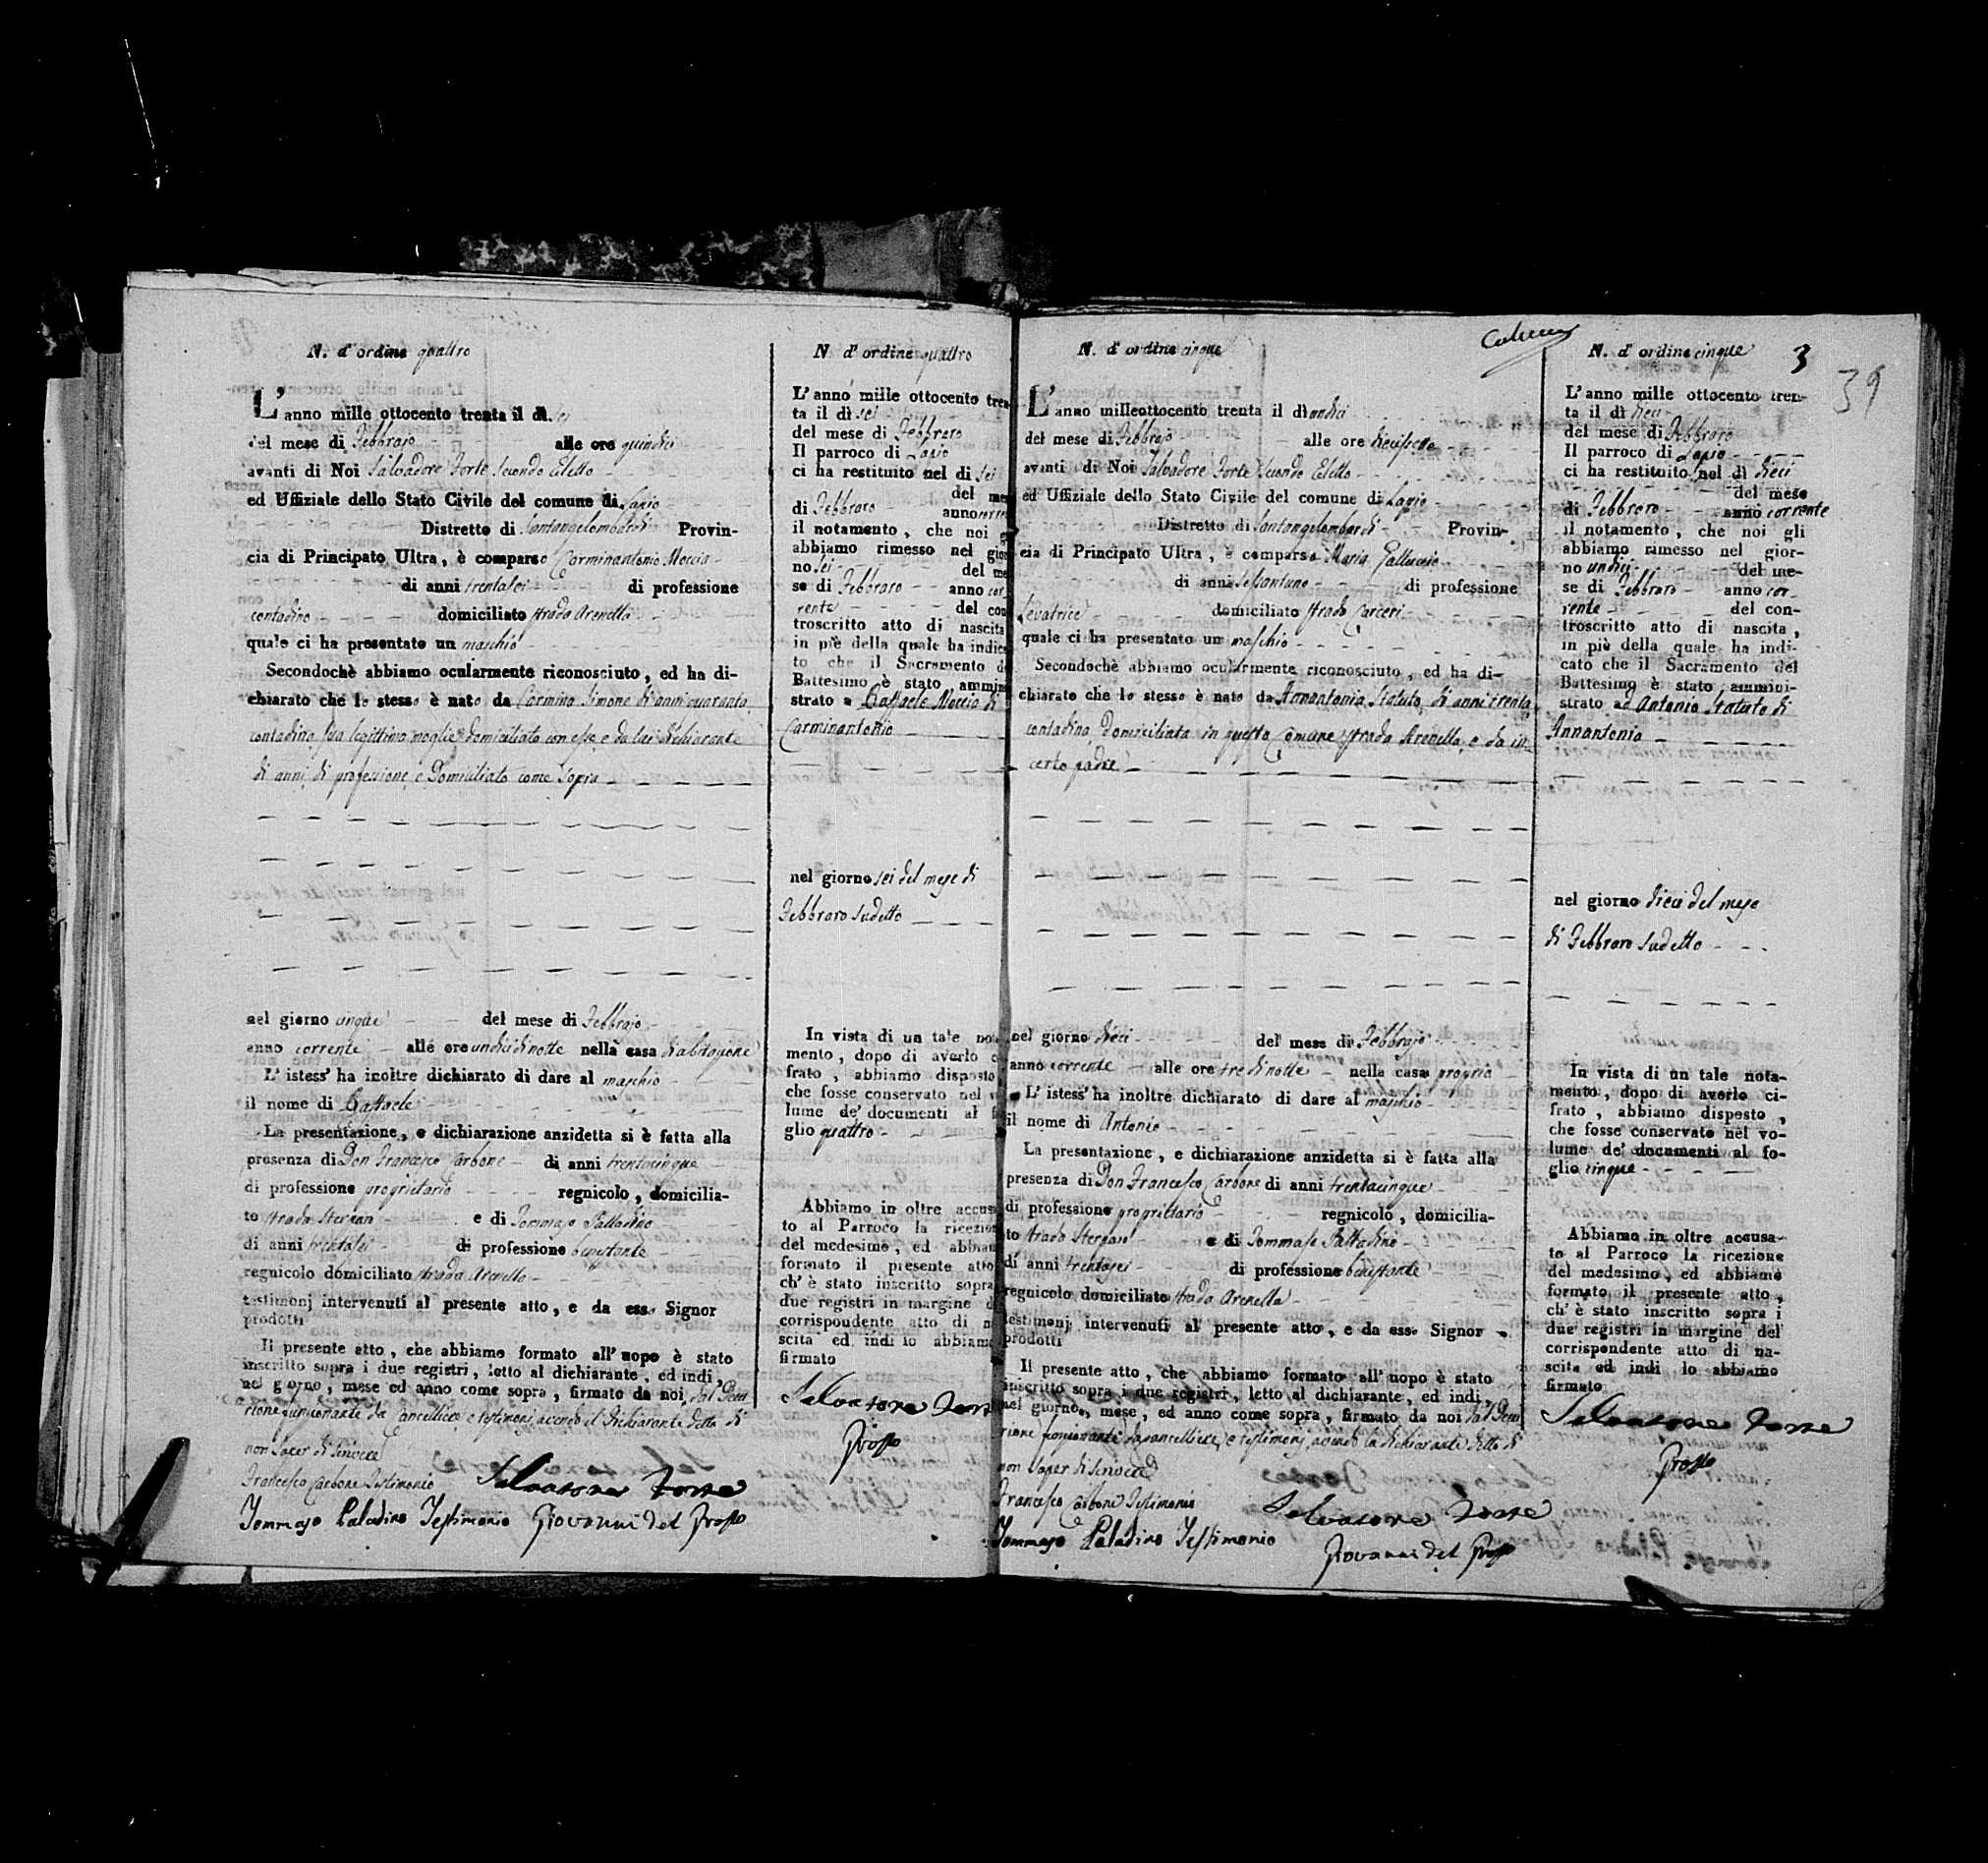 N. d' ordine quattro
L' anno mille ottocento trenta il dì sei
del mese di Febbraro alle ore quindici
avanti di Noi Salvadore Forte Secondo Eletto
ed Uffiziale dello Stato Civile del comune di Lapio
Distretto di Santangelombardi Provin-
cia di Principato Ultra, è comparso Carminantonio Moccia
di anni trentasei di professione
contadino domiciliato strada Arenella
quale ci ha presentato un maschio
Secondochè abbiamo ocularmente riconosciuto, ed ha di-
chiarato che lo stesso è nato da Carmina Simone di anni quaranta
contadina sua legittima moglie domiciliata con esso, e da lui dichiarante
di anni, di professione, e domiciliato come sopra
nel giorno cinque del mese di Febbrajo
anno corrente alle ore undici di notte nella casa di abitazione
L' istess' ha inoltre dichiarato di dare al maschio
il nome di Raffaele
La presentazione, e dichiarazione anzidetta si è fatta alla
presenza di Don Francesco Carbone di anni trentacinque
di professione proprietario regnicolo, domicilia-
to strada e di Tommaso Palladino
di anni trentasei di professione benestante
regnicolo domiciliato strada Arenella
testimonj intervenuti al presente atto, e da esso Signor
prodotti
Il presente atto, che abbiamo formato all' uopo è stato
inscritto sopra i due registri, letto al dichiarante, ed indi,
nel giorno, mese ed anno come sopra, firmato da noi, dal Decu
rione funzionante da Cancelliere, e testimonj avendo il dichiarante detto di
non saper di scrivere
Francesco Carbone Testimonio Salvatore Forte
Tommaso Paladino Testimonio Giovanni del Grosso
N d' ordine quattro
L' anno mille ottocento tren-
ta il dì sei
del mese di Febbraro
Il parroco di Lapio
ci ha restituito nel dì sei
del mese
di Febbraro anno corren
il notamento, che noi g
abbiamo rimesso nel gior
no sei del me
se di Febbraro anno cor-
rente del con
troscritto atto di nascita
in piè della quale ha indica
to che il Sacramento de
Battesimo è stato ammini
strato a Raffaele Moccia di
Carminantonio
nel giorno sei del mese di
Febbraro sudetto
In vista di un tale nota
mento, dopo di averlo c
frato, abbiamo disposto
che fosse conservato nel v
lume de' documenti al f
glio quattro
Abbiamo in oltre accusa
to al Parroco la ricezion
del medesimo, ed abbiam
formato il presente atto
ch' è stato inscritto sopra
due registri in margine d
corrispondente atto di n
scita ed indi lo abbiamo
firmato
Salvatore Forte
Grosso
N. d' ordine cinque
L' anno milleottocento trenta il dì undici
del mese di Febbrajo alle ore diecisette
avanti di Noi Salvadore Forte Secondo Eletto
ed Uffiziale dello Stato Civile del comune di Lapio
Distretto di Santangelombardi Provin-
cia di Principato Ultra, è comparsa Maria Galluccio
di anni sessantuno di professione
Levatrice domiciliato strada Carceri
quale ci ha presentato un maschio
Secondochè abbiamo ocularmente riconosciuto, ed ha di-
chiarato che lo stesso è nato da Annantonia Statuto, di anni trenta
contadina, Domiciliata in questo Comune strada Arenella, e da in
certo padre
nel giorno dieci del mese di Febbrajo
anno corrente alle ore tre di notte nella casa propria
L' istess' ha inoltre dichiarato di dare al maschio
il nome di Antonio
La presentazione, e dichiarazione anzidetta si è fatta alla
presenza di Don Francesco Carbone di anni trentacinque
di professione proprietario regnicolo, domicilia-
to strada e di Tommaso Palladino
di anni trentasei di professione benestante
regnicolo domiciliato strada Arenella
testimonj intervenuti al presente atto, e da esso Signor
prodotti
Il presente atto, che abbiamo formato all' uopo è stato
inscritto sopra i due registri, letto al dichiarante, ed indi,
nel giorno, mese, ed anno come sopra, firmato da noi dal Decu
rione funzionante da Cancelliere, e testimonj, avendo la dichiarante detto di
non saper di scrivere
Francesco Carbone Testimonio Salvatore Forte
Tommaso Paladino Testimonio Giovanni del Grosso
N. d' ordine cinque 3
39
L' anno mille ottocento tren-
ta il dì dieci
del mese di Febbraro
Il parroco di Lapio
ci ha restituito nel dì dieci
del mese
di Febbraro anno corrente
il notamento, che noi gli
abbiamo rimesso nel gior-
no undici del me-
se di Febbraro anno cor-
rente del con-
troscritto atto di nascita,
in piè della quale ha indi-
cato che il Sacramento del
Battesimo è stato ammini-
strato ad Antonio Statuto di
Annantonia
nel giorno dieci del mese
di Febbraro sudetto
In vista di un tale nota-
mento, dopo di averlo ci-
frato, abbiamo disposto,
che fosse conservato nel vo-
lume de' documenti al fo-
glio cinque
Abbiamo in oltre accusa-
to al Parroco la ricezione
del medesimo, ed abbiamo
formato il presente atto,
ch' è stato inscritto sopra i
due registri in margine del
corrispondente atto di na-
scita ed indi lo abbiamo
firmato
Salvatore Forte
Grosso